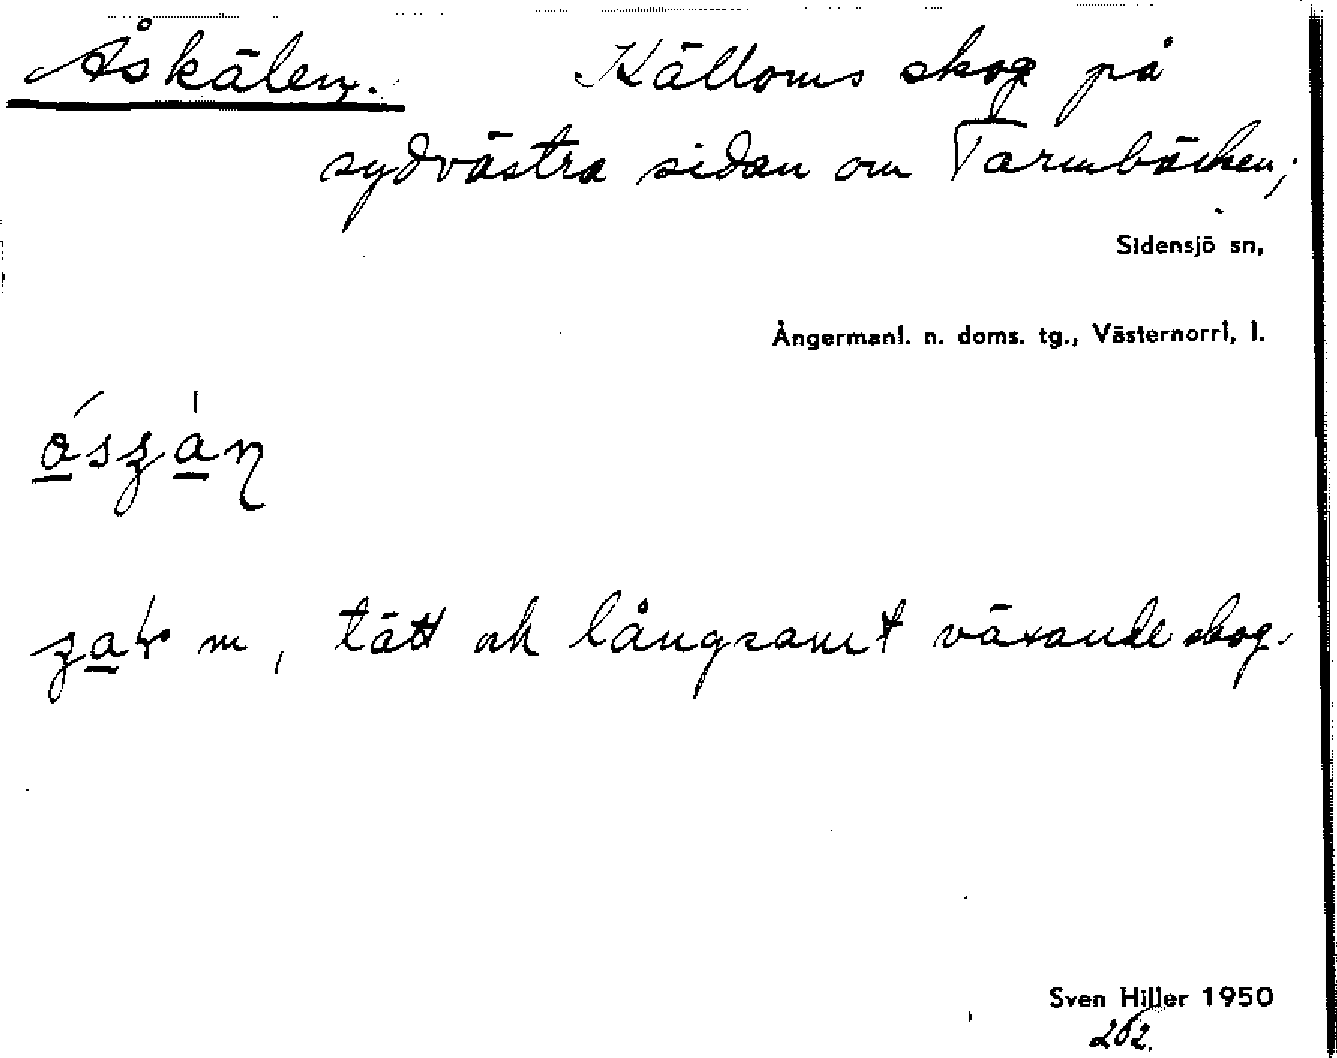 Åskälen. Källoms skog på
sydvästra sidan om Tarmbäcken,
Sidensjö sn,
Ångermanl. n. doms. tg., Västernorrl, l.
m, tätt och långsamt växande skog.
Sven Hiller 1950
262.